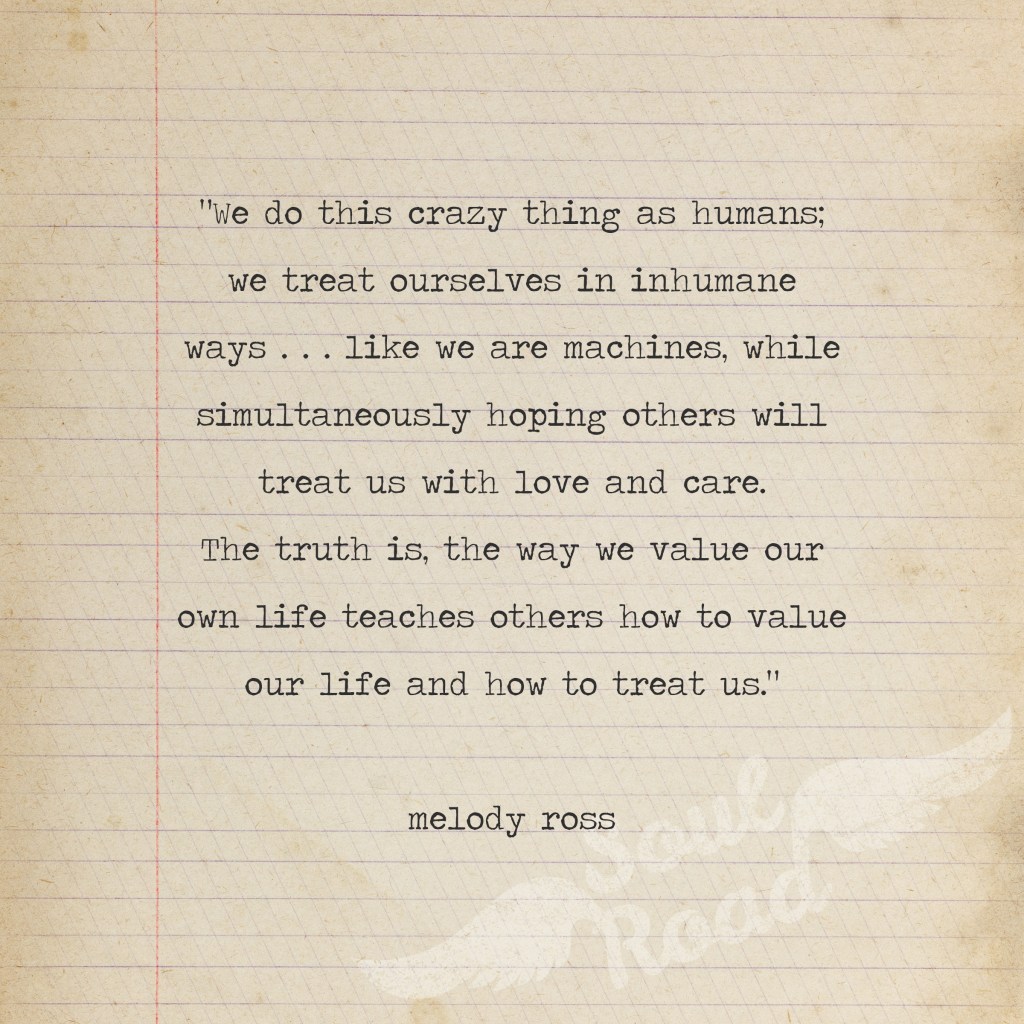 "We do this crazy thing as humans;
we treat ourselves in inhumane
ways . . . like we are machines, while
simultaneously hoping others will
treat us with love and care.
The truth is, the way we value our
own life teaches others how to value
our life and how to treat us."
melody ross
Soul
Road